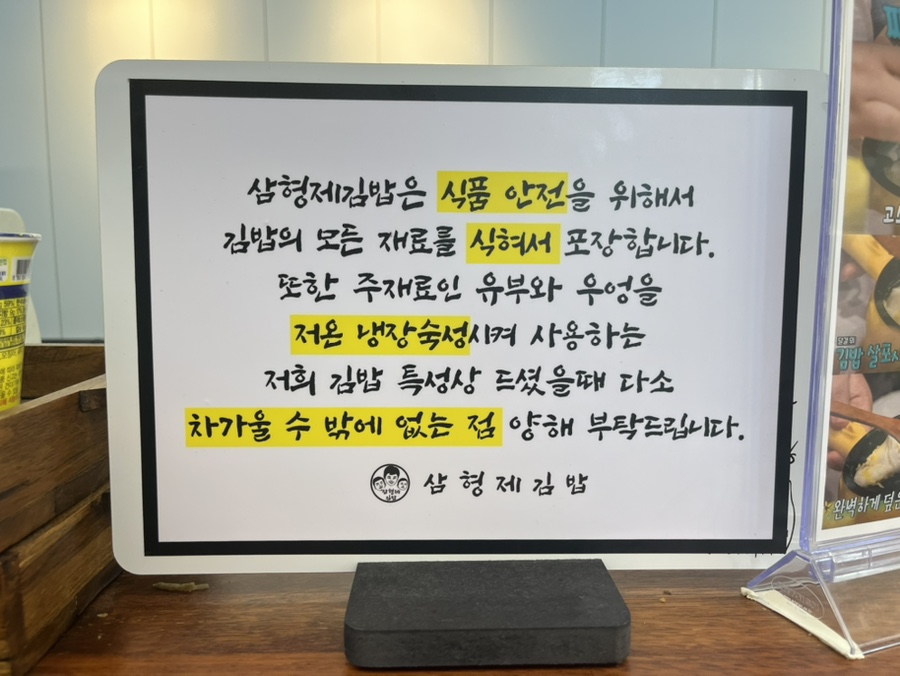 삼형제김밥은 식품 안전을 위해서
김밥의 모든 재료를 식혀서 포장합니다.
또한 주재료인 유부와 우엉을
저온 냉장숙성시켜 사용하는
저희 김밥 특성상 드셨을때 다소
차가울 수 밖에 없는 점 양해 부탁드립니다.
삼형제김밥
김밥 살포시
완벽하게 덮은